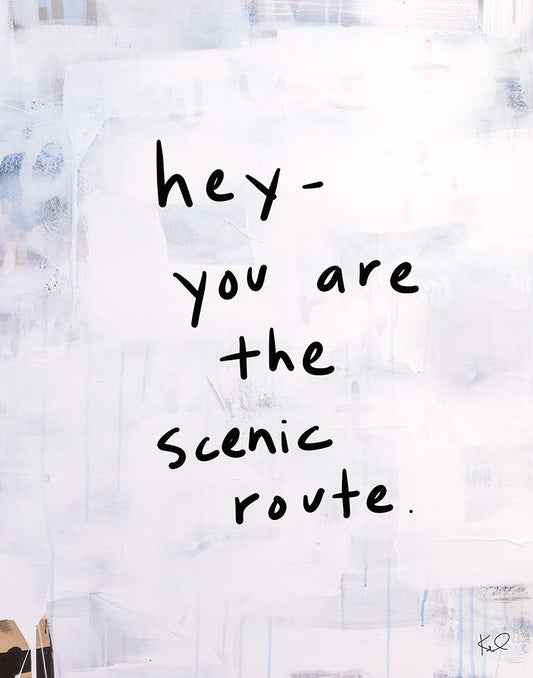 hey-
you are
the
scenic
route.